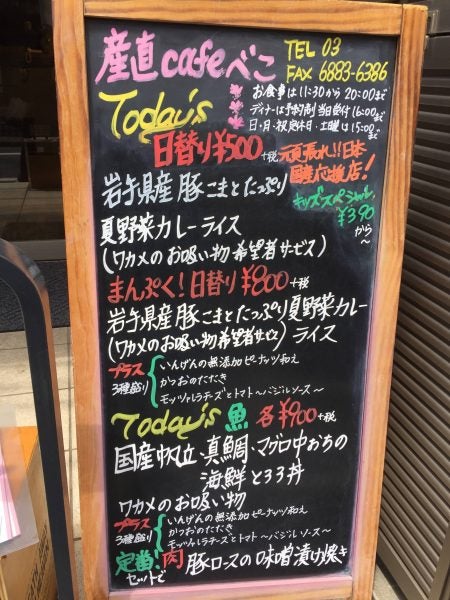 産直cafeべこ
TEL 03
FAX 6883-6386
お食事は11:30から20:00まで
ディナーは予約制 当日受付16:00まで
日・月・祝定休日・土曜は15:00まで
Today's
日替り¥500+税
頑張れ!!日本
国産応援店!
キッズスペシャル
¥390
から〜
岩手県産豚こまとたっぷり
夏野菜カレーライス
(ワカメのお吸い物希望者サービス)
まんぷく!日替り¥800+税
岩手県産豚こまとたっぷり夏野菜カレー
(ワカメのお吸い物希望者サービス)ライス
プラス
3種盛り
いんげんの無添加ピーナッツ和え
かつおのたたき
モッツァレラチーズとトマト〜バジルソース〜
Today's 魚 各¥900+税
国産帆立・真鯛・マグロ中おちの
海鮮とろろ丼
ワカメのお吸い物
プラス
3種盛り
いんげんの無添加ピーナッツ和え
かつおのたたき
モッツァレラチーズとトマト〜バジルソース〜
定番!肉 豚ロースの味噌漬け焼き
セットで